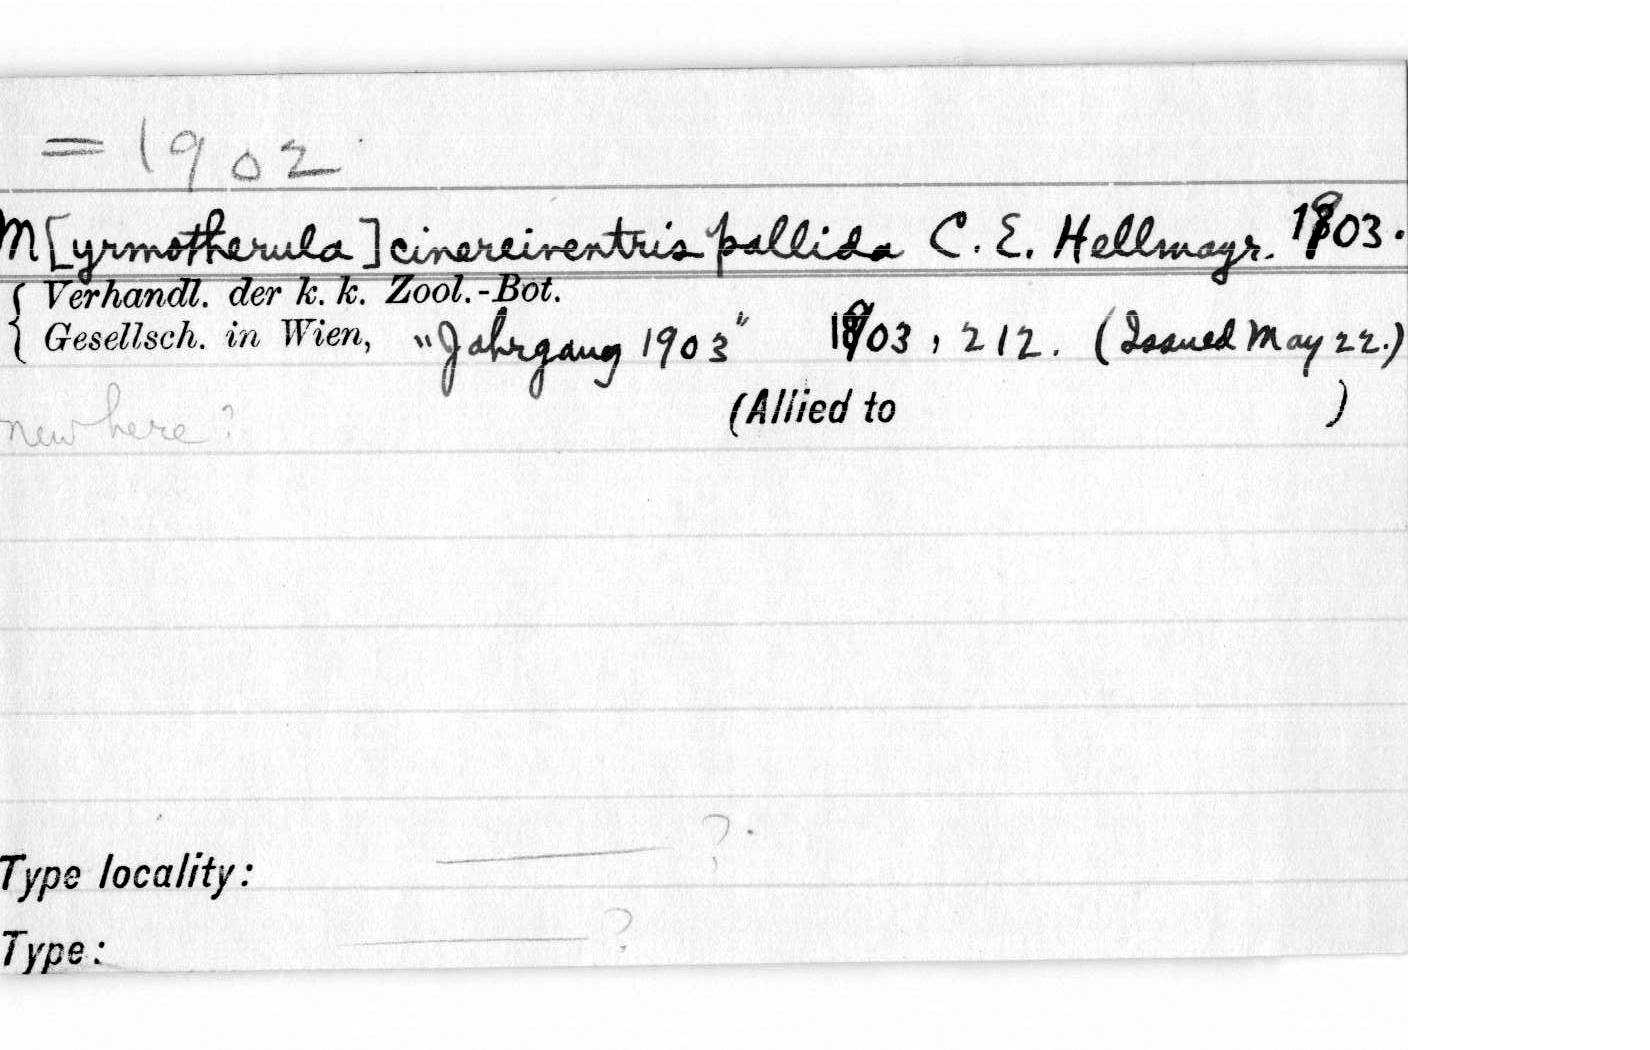 = 1902
M[yrmotherula] cinereiventris pallida C. E. Hellmayr. 1903.
Verhandl. der k. k. Zool.-Bot.
Gesellsch. in Wien, "Jahrgang 1903" 1903, 212. (Issued May 22.)
new here? (Allied to )
Type locality: ?.
Type: ?